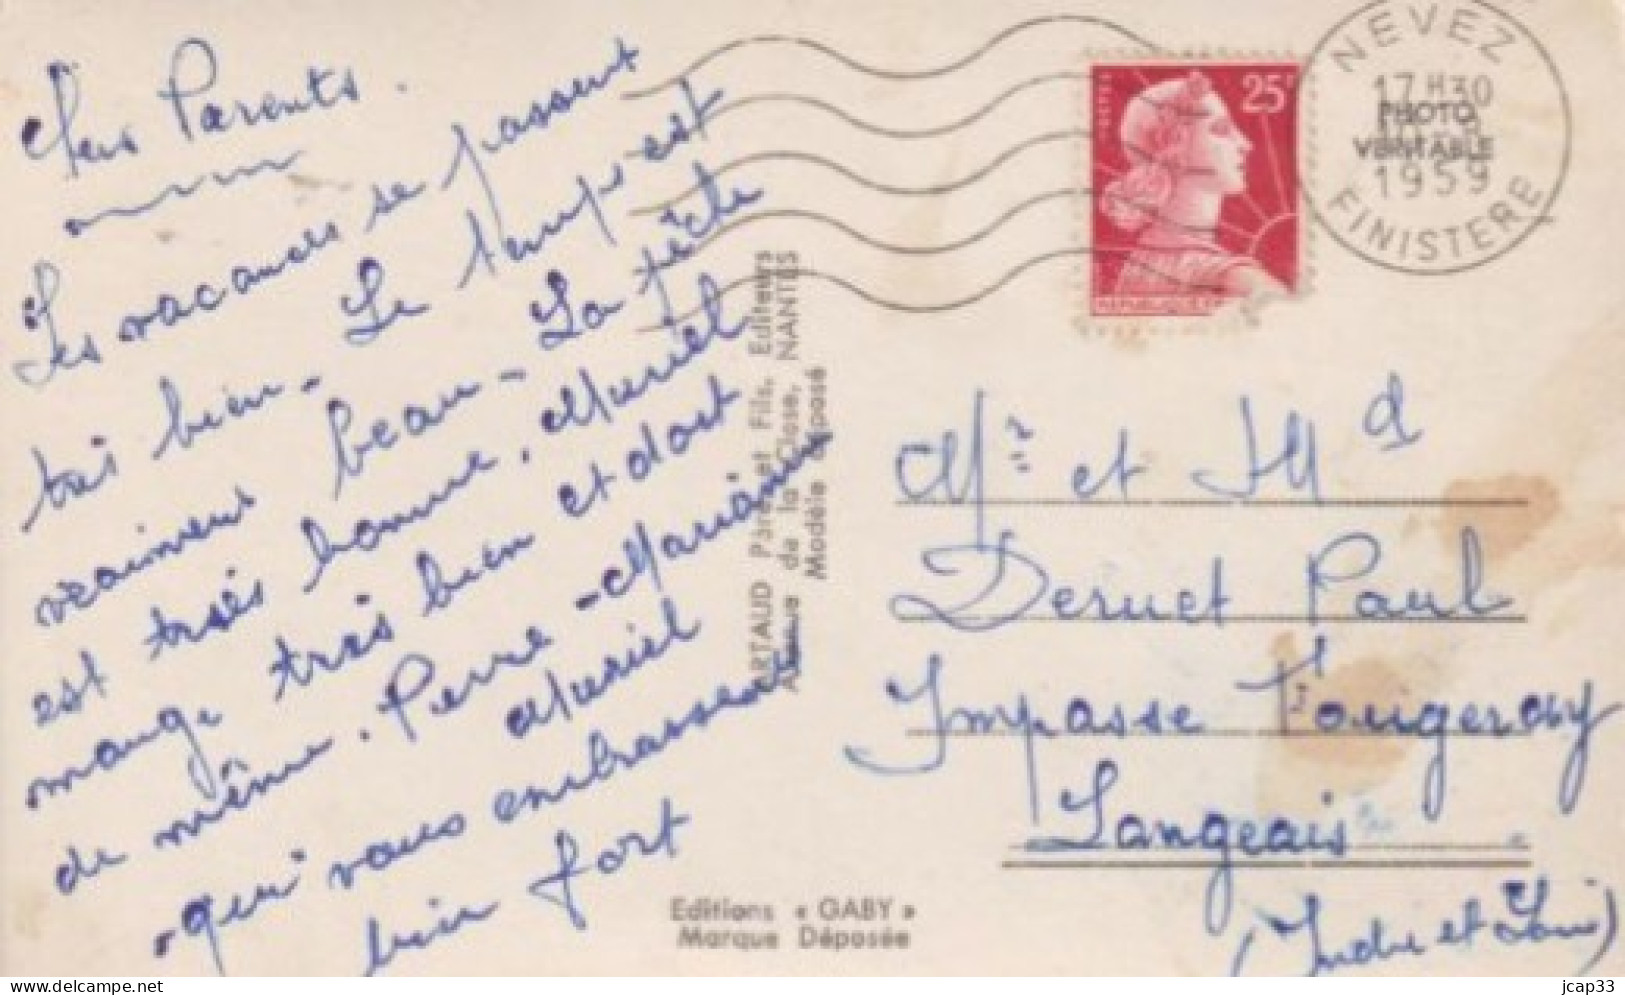 Chers Parents.
Les vacances se passent
très bien - Le temps est
vraiment beau - La pêche
est très bonne. Muriel
mange très bien et dort
de même. Pierre - Marianne
Muriel
qui vous embrassent
bien fort
ARTAUD Père et Fils, Editeurs
de la Close, NANTES
Modèle déposé
Editions « GABY »
Marque Déposée
POSTES
25F
NEVEZ
17H30
PHOTO
VERITABLE
1959
FINISTERE
Mr et Md
Deruet Paul
Impasse Fougeray
Langeais
(Indre et Loire)
jcap33